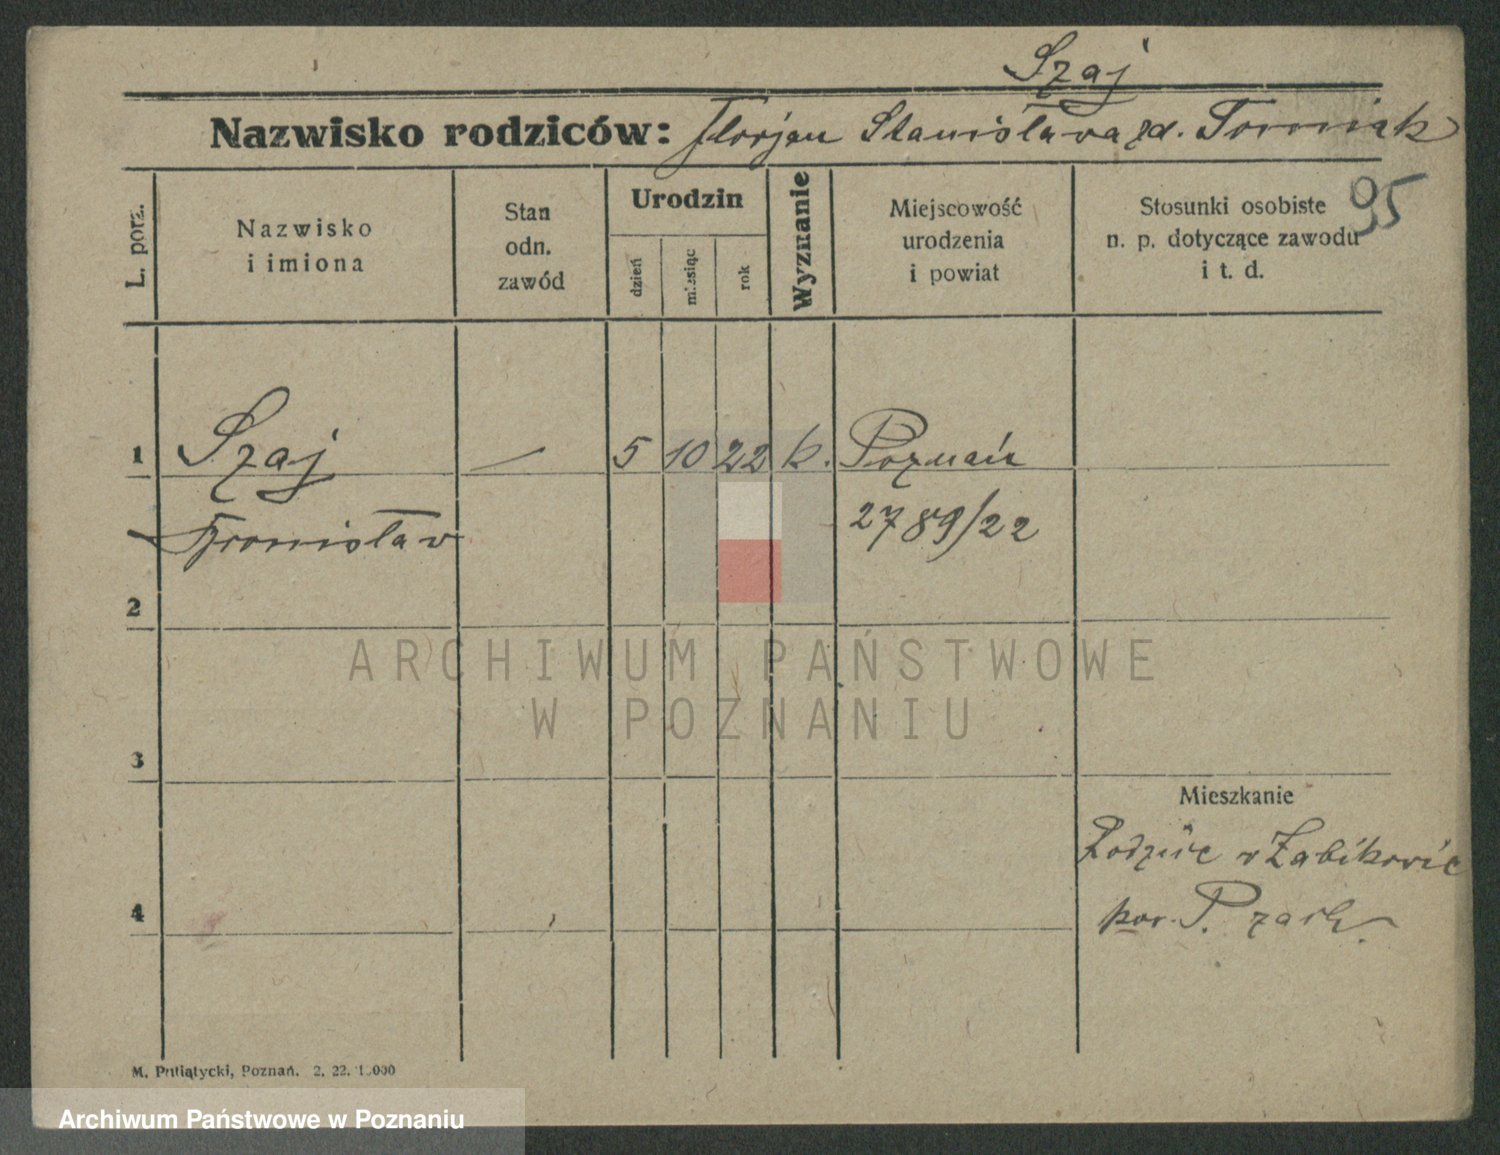 Szaj
Nazwisko rodziców: Florjan Stanisława zd. Tomiak
95
L. porz.
Nazwisko
i imiona
Stan
odn.
zawód
Urodzin
dzień
miesiąc
rok
Wyznanie
Miejscowość
urodzenia
i powiat
Stosunki osobiste
n. p. dotyczące zawodu
i t. d.
1 Szaj — 5 10 22 k. Poznań
Bronisław 2789/22
2
ARCHIWUM PAŃSTWOWE
W POZNANIU
3
Mieszkanie
Rodzice w Żabikowie
4 pow. P. zach.
M. Putiatycki, Poznań. 2. 22.
Archiwum Państwowe w Poznaniu